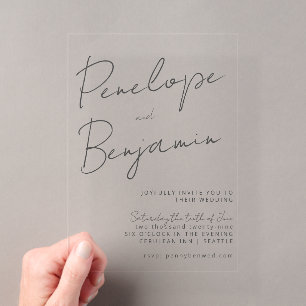 Penelope
and
Benjamin
JOYFULLY INVITE YOU TO
THEIR WEDDING
Saturday the tenth of June
two thousand twenty-nine
SIX O'CLOCK IN THE EVENING
CERULEAN INN | SEATTLE
rsvp: pennybenwed.com